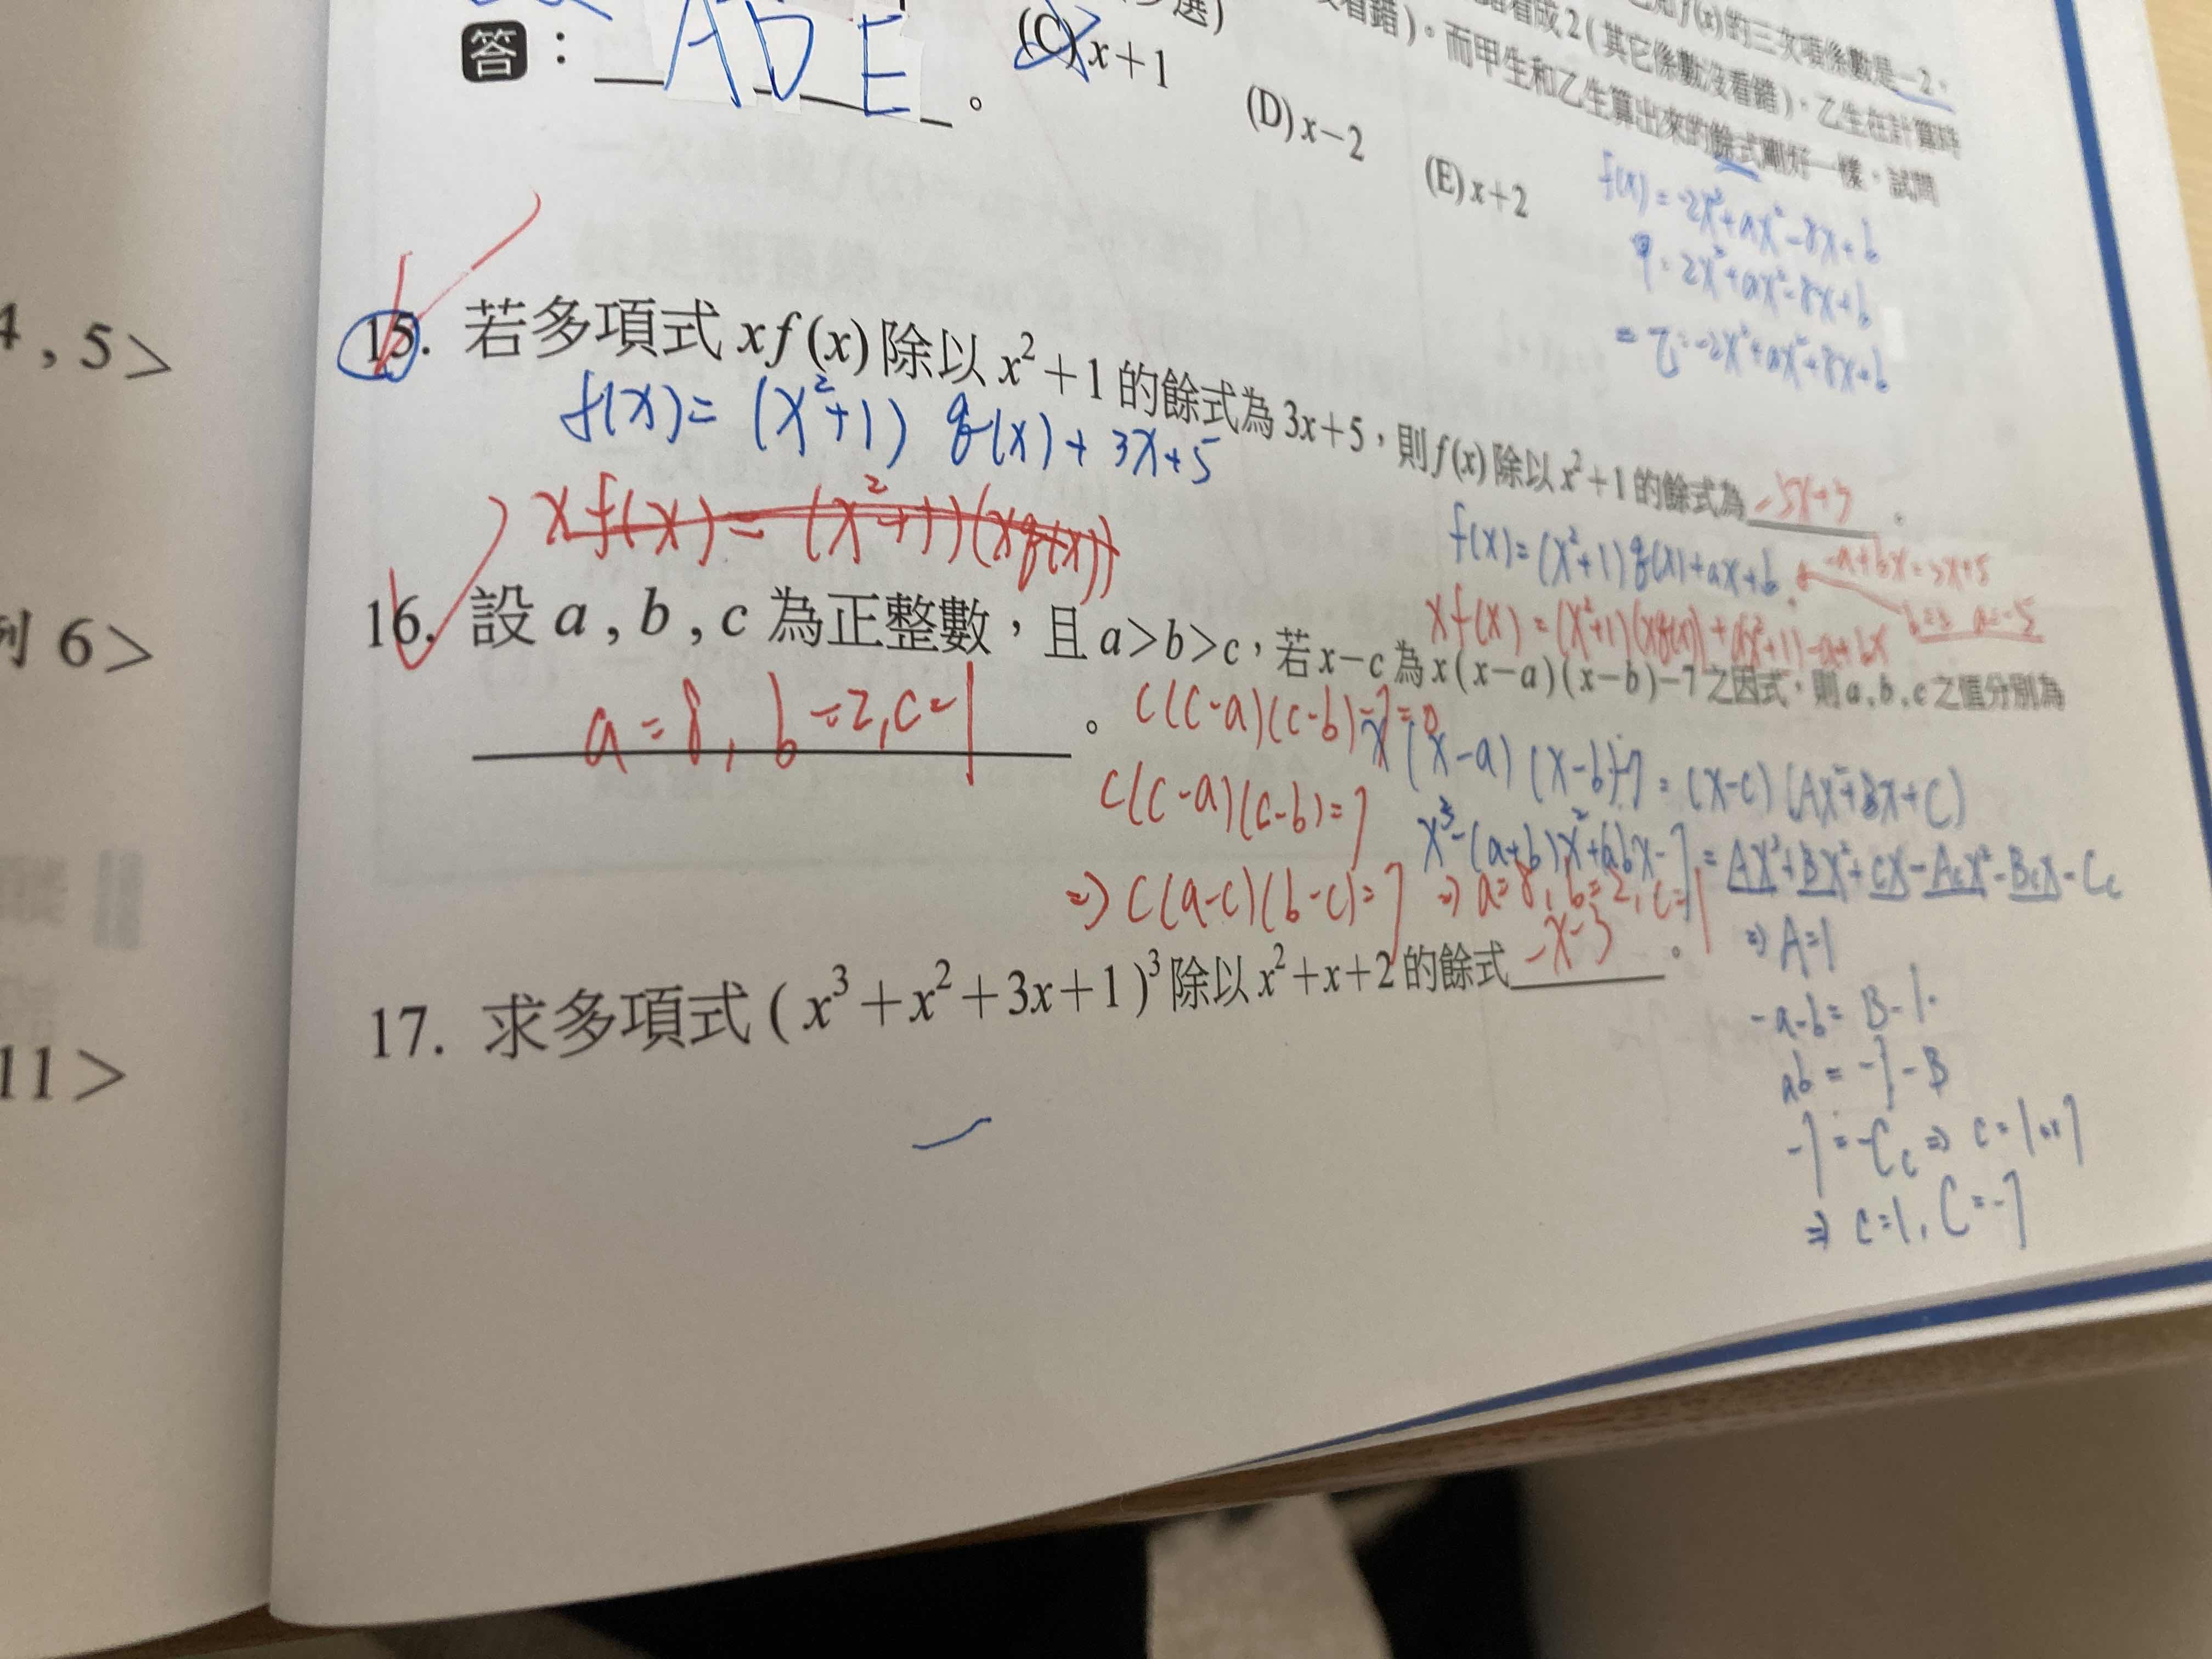 已知f(x)的三次項係數是-2,
看成2(其它係數沒看錯),乙生在計算時
看錯)。而甲生和乙生算出來的餘式剛好一樣,試問
選)
(C) x+1
(D) x-2
(E) x+2
答:ADE。
f(x)=-2x³+ax²-8x+b
甲:2x³+ax²-8x+b
=乙:-2x³+ax²+8x+b
4,5>
15. 若多項式 xf(x) 除以 x²+1 的餘式為 3x+5,則 f(x) 除以 x²+1 的餘式為 -5x+3。
f(x)=(x²+1) q(x)+3x+5
xf(x)=(x²+1)(xq(x))
f(x)=(x²+1)q(x)+ax+b
-a+bx=3x+5
b=3 a=-5
xf(x)=(x²+1)(xq(x))+a(x²+1)-a+bx
列 6>
16. 設 a,b,c 為正整數,且 a>b>c,若 x-c 為 x(x-a)(x-b)-7 之因式,則 a,b,c 之值分別為
a=8, b=2, c=1。
c(c-a)(c-b)-7=0
c(c-a)(c-b)=7
⇒ c(a-c)(b-c)=7 ⇒ a=8, b=2, c=1
x(x-a)(x-b)-7=(x-c)(Ax²+Bx+C)
x³-(a+b)x²+abx-7=Ax³+Bx²+Cx-Acx²-Bcx-Cc
⇒ A=1
-a-b=B-1
ab=-7-B
-7=-Cc ⇒ c=1 or 7
⇒ c=1, C=-7
11>
17. 求多項式 (x³+x²+3x+1)³ 除以 x²+x+2 的餘式 -x-3。